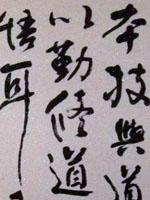 本技與道
以勤修道
悟耳